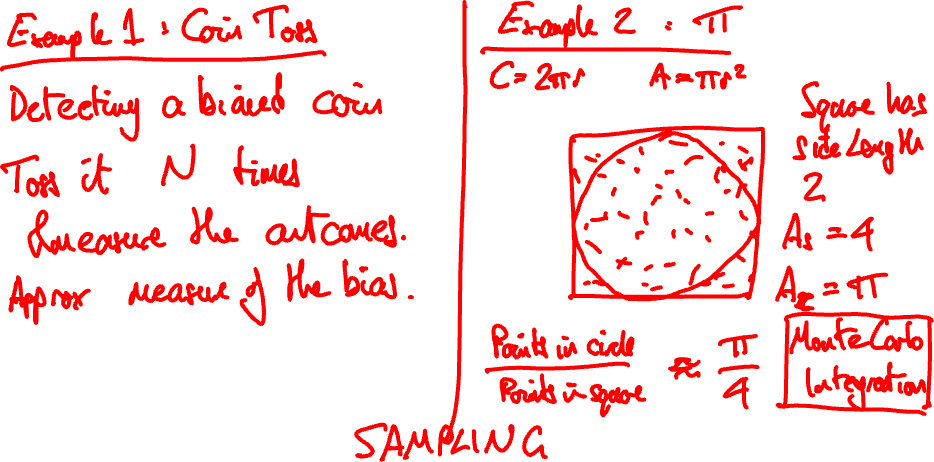 Example 1: Coin Toss
Detecting a biased coin
Toss it N times
& measure the outcomes.
Approx measure of the bias.
Example 2: π
C = 2πr A = πr²
Square has
side length
2
As = 4
Ac = π
Points in circle
Points in square
≈ π
4
Monte Carlo
Integration
SAMPLING